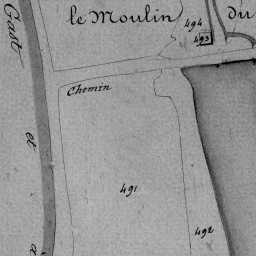 le Moulin du
494
493
Gast
Chemin
et
à
491
492